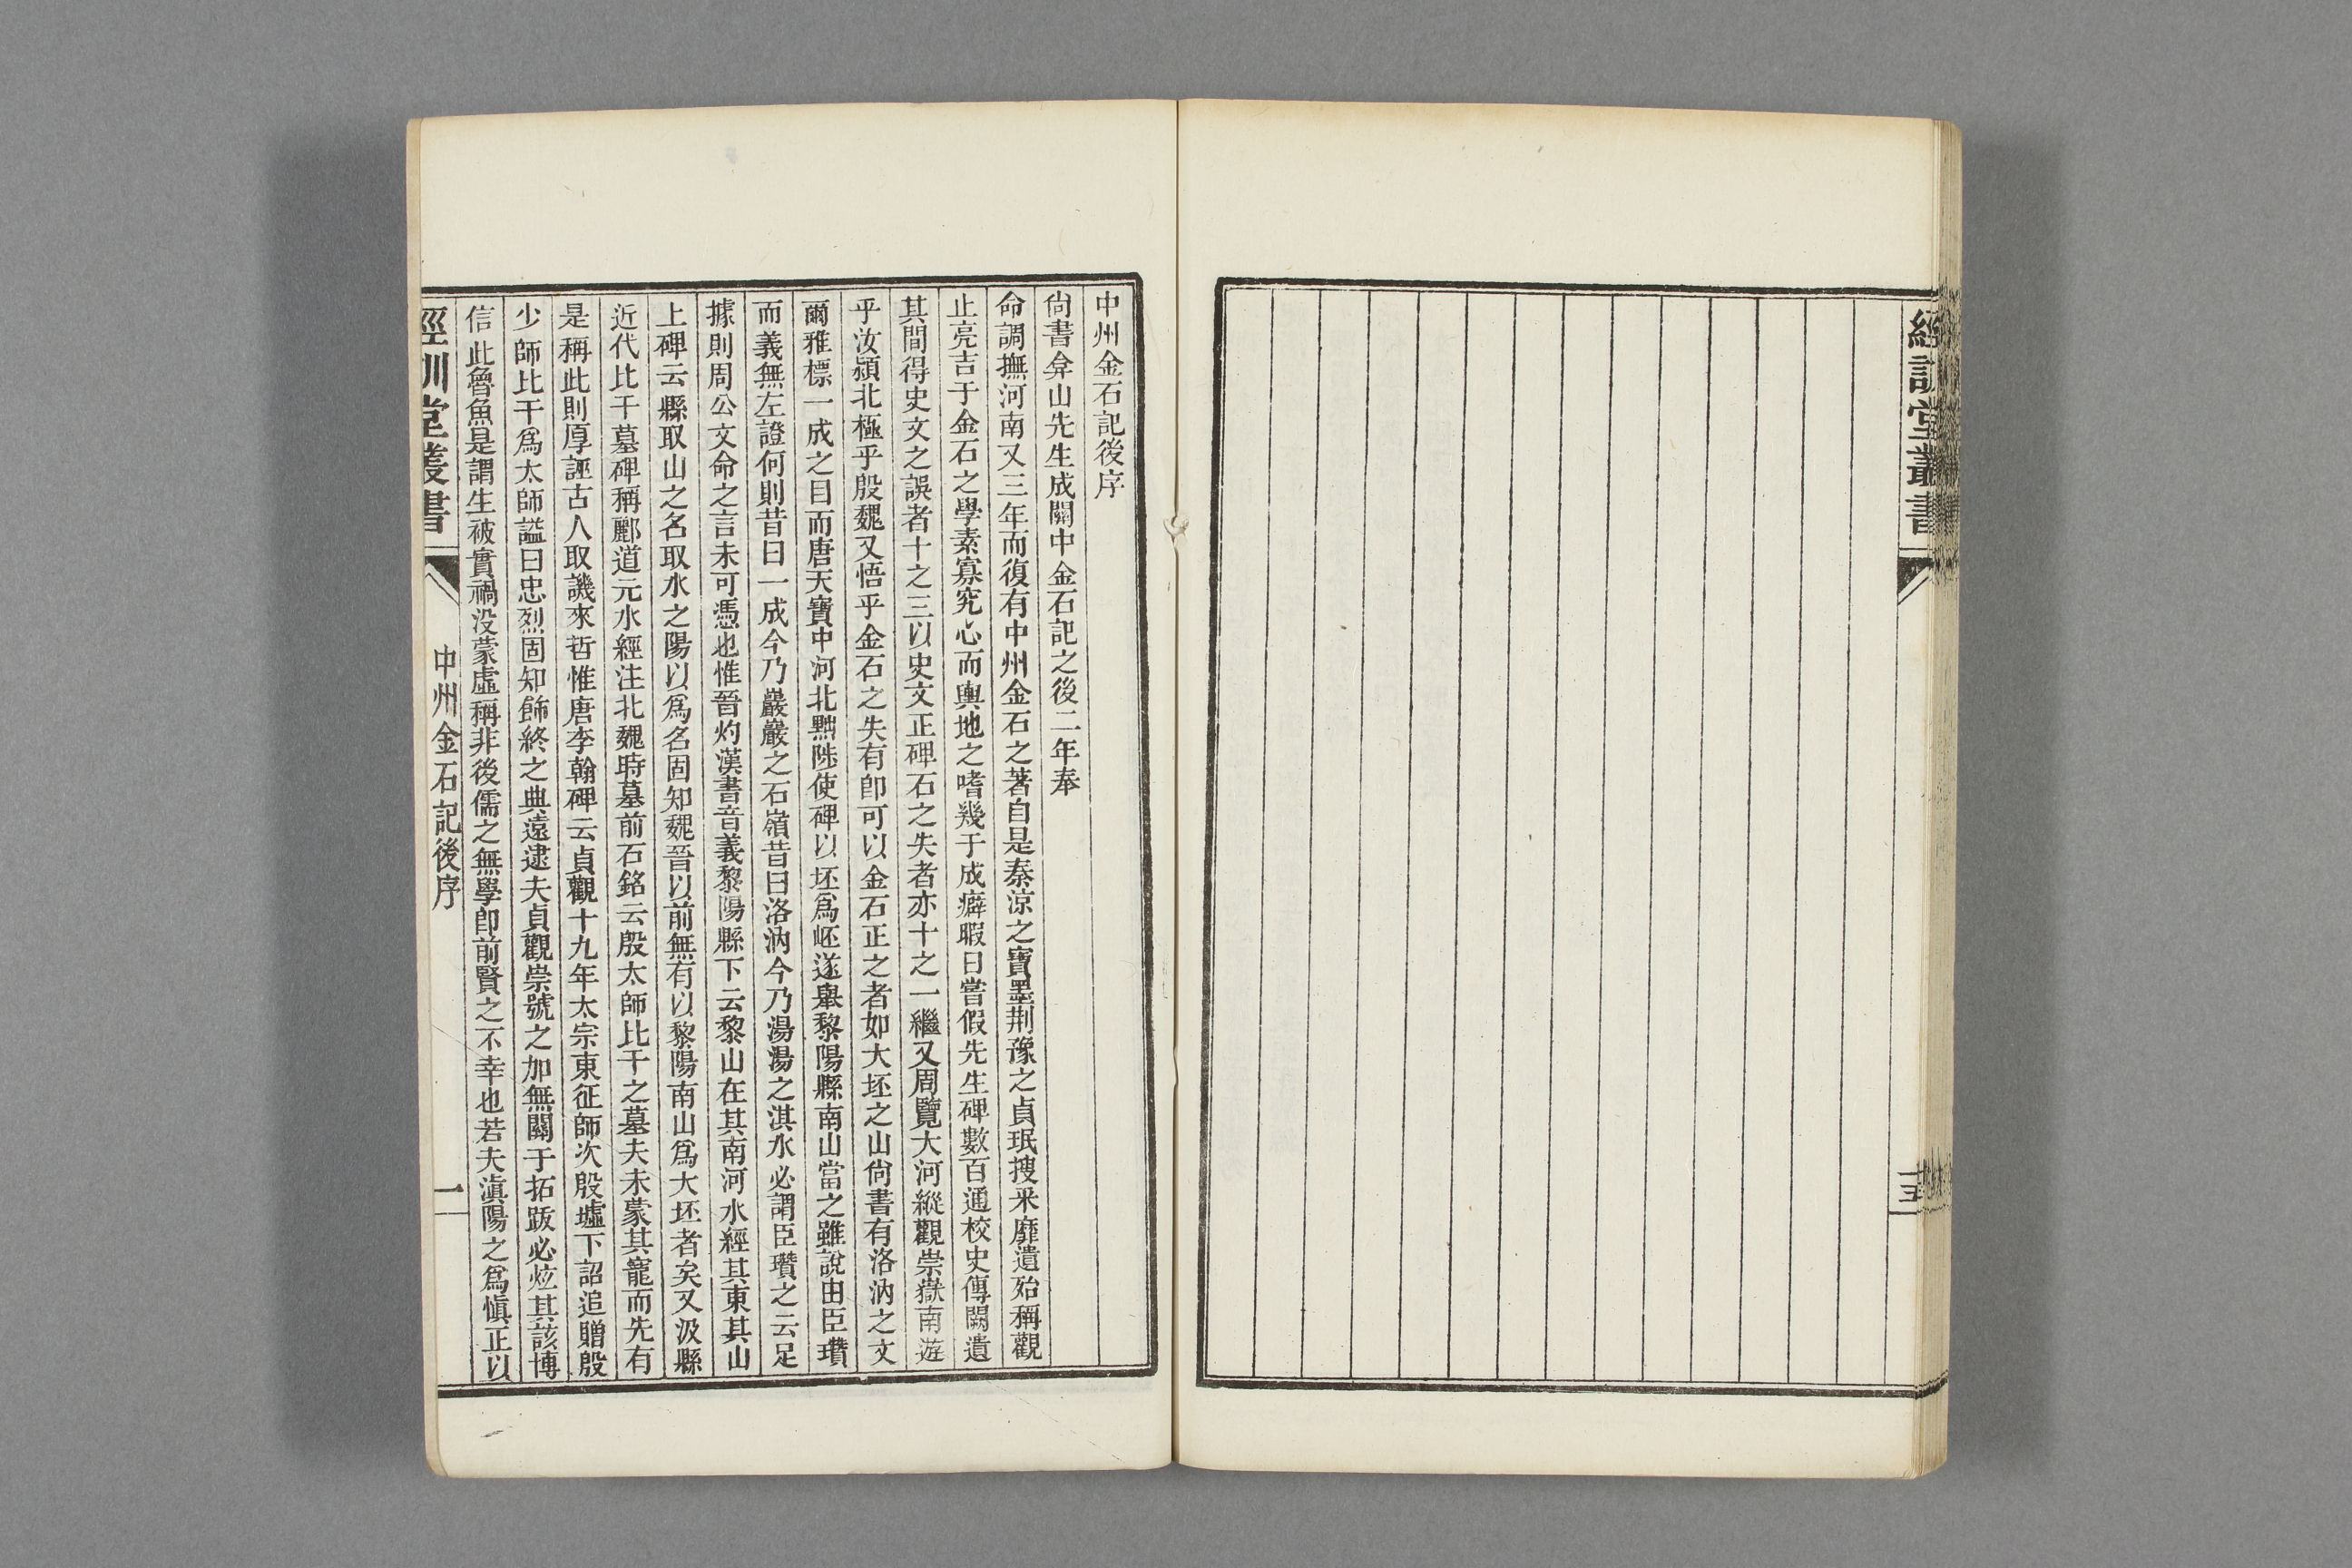 經訓堂叢書
十五
中州金石記後序
尙書弇山先生成關中金石記之後二年奉
命調撫河南又三年而復有中州金石之著自是秦涼之寶墨荆豫之貞珉搜釆靡遺殆稱觀
止亮吉于金石之學素寡究心而輿地之嗜幾于成癖暇日嘗假先生碑數百通校史傳闕遺
其間得史文之誤者十之三以史文正碑石之失者亦十之一繼又周覽大河縱觀崇嶽南遊
乎汝潁北極乎殷魏又悟乎金石之失有卽可以金石正之者如大坯之山尙書有洛汭之文
爾雅標一成之目而唐天寶中河北黜陟使碑以坯爲岯遂舉黎陽縣南山當之雖說由臣瓚
而義無左證何則昔曰一成今乃巖巖之石嶺昔曰洛汭今乃湯湯之淇水必謂臣瓚之云足
據則周公文命之言未可憑也惟晉灼漢書音義黎陽縣下云黎山在其南河水經其東其山
上碑云縣取山之名取水之陽以爲名固知魏晉以前無有以黎陽南山爲大坯者矣又汲縣
近代比干墓碑稱酈道元水經注北魏時墓前石銘云殷太師比干之墓夫未蒙其寵而先有
是稱此則厚誣古人取譏來哲惟唐李翰碑云貞觀十九年太宗東征師次殷墟下詔追贈殷
少師比干爲太師謚曰忠烈固知飾終之典遠逮夫貞觀崇號之加無關于拓跋必炫其該博
信此魯魚是謂生被實禍没蒙虛稱非後儒之無學卽前賢之不幸也若夫滇陽之爲愼正以
經訓堂叢書
中州金石記後序
一